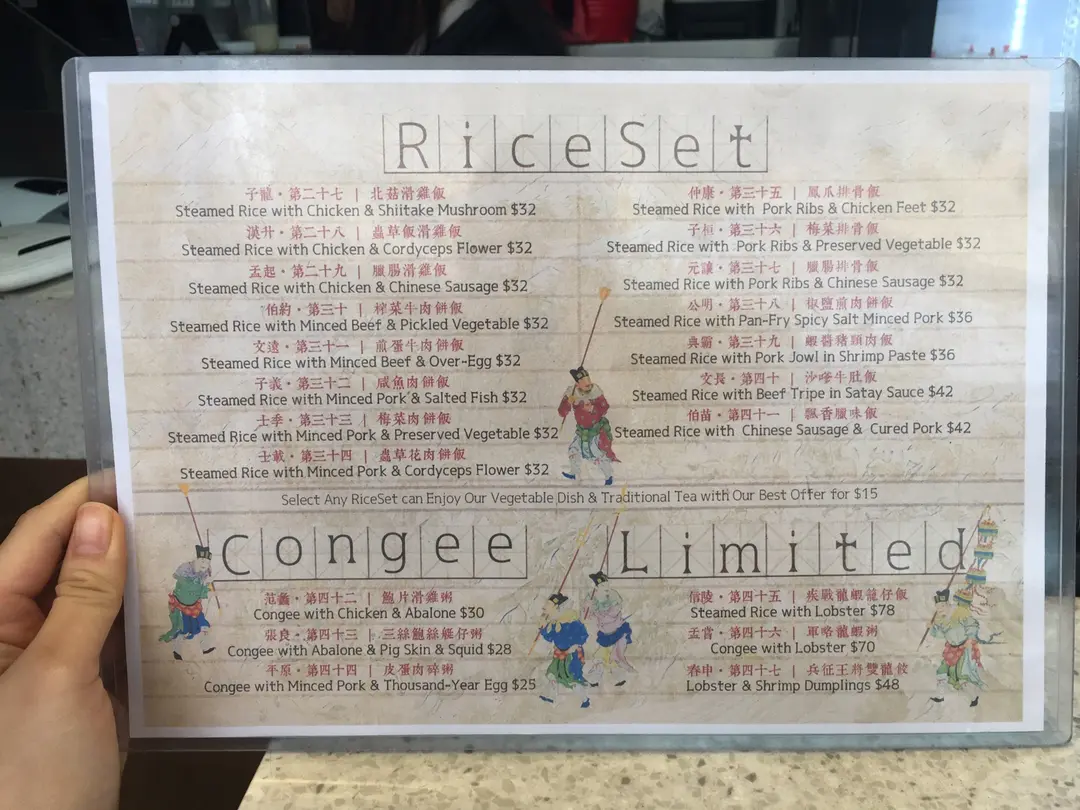 RiceSet
子龍・第二十七 | 北菇滑雞飯
Steamed Rice with Chicken & Shiitake Mushroom $32
漢升・第二十八 | 蟲草飯滑雞飯
Steamed Rice with Chicken & Cordyceps Flower $32
孟起・第二十九 | 臘腸滑雞飯
Steamed Rice with Chicken & Chinese Sausage $32
伯約・第三十 | 榨菜牛肉餅飯
Steamed Rice with Minced Beef & Pickled Vegetable $32
文遠・第三十一 | 煎蛋牛肉餅飯
Steamed Rice with Minced Beef & Over-Egg $32
子義・第三十二 | 咸魚肉餅飯
Steamed Rice with Minced Pork & Salted Fish $32
士季・第三十三 | 梅菜肉餅飯
Steamed Rice with Minced Pork & Preserved Vegetable $32
士載・第三十四 | 蟲草花肉餅飯
Steamed Rice with Minced Pork & Cordyceps Flower $32
仲康・第三十五 | 鳳爪排骨飯
Steamed Rice with Pork Ribs & Chicken Feet $32
子桓・第三十六 | 梅菜排骨飯
Steamed Rice with Pork Ribs & Preserved Vegetable $32
元讓・第三十七 | 臘腸排骨飯
Steamed Rice with Pork Ribs & Chinese Sausage $32
公明・第三十八 | 椒鹽煎肉餅飯
Steamed Rice with Pan-Fry Spicy Salt Minced Pork $36
典霸・第三十九 | 蝦醬豬頸肉飯
Steamed Rice with Pork Jowl in Shrimp Paste $36
文長・第四十 | 沙嗲牛肚飯
Steamed Rice with Beef Tripe in Satay Sauce $42
伯苗・第四十一 | 飄香臘味飯
Steamed Rice with Chinese Sausage & Cured Pork $42
Select Any RiceSet can Enjoy Our Vegetable Dish & Traditional Tea with Our Best Offer for $15
Congee
范蠡・第四十二 | 鮑片滑雞粥
Congee with Chicken & Abalone $30
張良・第四十三 | 三絲鮑絲艇仔粥
Congee with Abalone & Pig Skin & Squid $28
平原・第四十四 | 皮蛋肉碎粥
Congee with Minced Pork & Thousand-Year Egg $25
Limited
信陵・第四十五 | 疾戰龍蝦籠仔飯
Steamed Rice with Lobster $78
孟嘗・第四十六 | 軍略龍蝦粥
Congee with Lobster $70
春申・第四十七 | 兵征王將雙龍餃
Lobster & Shrimp Dumplings $48